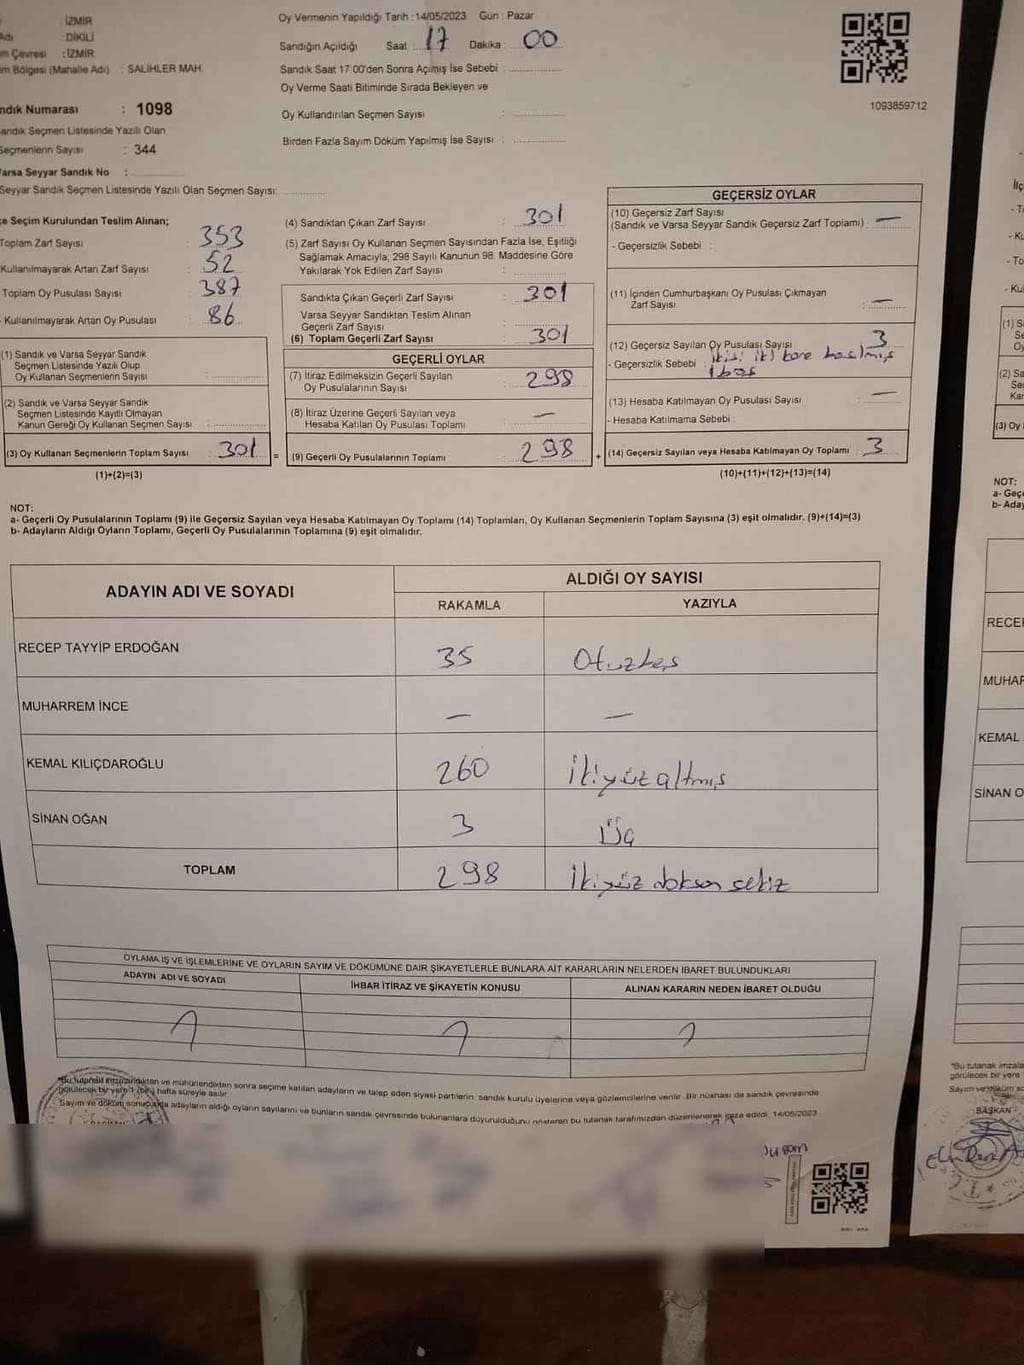 İZMİR
Adı : DİKİLİ
m Çevresi : İZMİR
m Bölgesi (Mahalle Adı) : SALİHLER MAH.
ndık Numarası : 1098
andık Seçmen Listesinde Yazılı Olan
Seçmenlerin Sayısı : 344
Varsa Seyyar Sandık No :
Seyyar Sandık Seçmen Listesinde Yazılı Olan Seçmen Sayısı:
Oy Vermenin Yapıldığı Tarih : 14/05/2023 Gün : Pazar
Sandığın Açıldığı Saat 17 Dakika : 00
Sandık Saat 17:00'den Sonra Açımış İse Sebebi :
Oy Verme Saati Bitiminde Sırada Bekleyen ve
Oy Kullandırılan Seçmen Sayısı :
Birden Fazla Sayım Döküm Yapılmış İse Sayısı :
1093859712
çe Seçim Kurulundan Teslim Alınan;
Toplam Zarf Sayısı : 353
Kullanılmayarak Artan Zarf Sayısı : 52
Toplam Oy Pusulası Sayısı : 387
Kullanılmayarak Artan Oy Pusulası : 86
(1) Sandık ve Varsa Seyyar Sandık
Seçmen Listesinde Yazılı Olup
Oy Kullanan Seçmenlerin Sayısı :
(2) Sandık ve Varsa Seyyar Sandık
Seçmen Listesinde Kayıtlı Olmayan
Kanun Gereği Oy Kullanan Seçmen Sayısı :
(3) Oy Kullanan Seçmenlerin Toplam Sayısı : 301 =
(1)+(2)=(3)
(4) Sandıktan Çıkan Zarf Sayısı : 301
(5) Zarf Sayısı Oy Kullanan Seçmen Sayısından Fazla İse, Eşitliği
Sağlamak Amacıyla; 298 Sayılı Kanunun 98. Maddesine Göre
Yakılarak Yok Edilen Zarf Sayısı :
Sandıkta Çıkan Geçerli Zarf Sayısı : 301
Varsa Seyyar Sandıktan Teslim Alınan
Geçerli Zarf Sayısı :
(6) Toplam Geçerli Zarf Sayısı : 301
GEÇERLİ OYLAR
(7) İtiraz Edilmeksizin Geçerli Sayılan
Oy Pusulalarının Sayısı : 298
(8) İtiraz Üzerine Geçerli Sayılan veya
Hesaba Katılan Oy Pusulası Toplamı : —
(9) Geçerli Oy Pusulalarının Toplamı : 298 +
GEÇERSİZ OYLAR
(10) Geçersiz Zarf Sayısı
(Sandık ve Varsa Seyyar Sandık Geçersiz Zarf Toplamı) : —
- Geçersizlik Sebebi :
(11) İçinden Cumhurbaşkanı Oy Pusulası Çıkmayan
Zarf Sayısı : —
(12) Geçersiz Sayılan Oy Pusulası Sayısı : 3
- Geçersizlik Sebebi : ikisi iki kere basılmış
1 boş
(13) Hesaba Katılmayan Oy Pusulası Sayısı : —
- Hesaba Katılmama Sebebi :
(14) Geçersiz Sayılan veya Hesaba Katılmayan Oy Toplamı : 3
(10)+(11)+(12)+(13)=(14)
NOT:
a- Geçerli Oy Pusulalarının Toplamı (9) ile Geçersiz Sayılan veya Hesaba Katılmayan Oy Toplamı (14) Toplamları, Oy Kullanan Seçmenlerin Toplam Sayısına (3) eşit olmalıdır. (9)+(14)=(3)
b- Adayların Aldığı Oyların Toplamı, Geçerli Oy Pusulalarının Toplamına (9) eşit olmalıdır.
ADAYIN ADI VE SOYADI
ALDIĞI OY SAYISI
RAKAMLA YAZIYLA
RECEP TAYYİP ERDOĞAN 35 Otuzbeş
MUHARREM İNCE — —
KEMAL KILIÇDAROĞLU 260 İkiyüzaltmış
SİNAN OĞAN 3 Üç
TOPLAM 298 İkiyüz doksan sekiz
OYLAMA İŞ VE İŞLEMLERİNE VE OYLARIN SAYIM VE DÖKÜMÜNE DAİR ŞİKAYETLERLE BUNLARA AİT KARARLARIN NELERDEN İBARET BULUNDUKLARI
ADAYIN ADI VE SOYADI İHBAR İTİRAZ VE ŞİKAYETİN KONUSU ALINAN KARARIN NEDEN İBARET OLDUĞU
*Bu tutanak imzalandıktan ve mühürlendikten sonra seçime katılan adayların ve talep eden siyasi partilerin, sandık kurulu üyelerine veya gözlemcilerine verilir. Bir nüshası da sandık çevresinde
görülecek bir yere 1 (bir) hafta süreyle asılır.
Sayım ve döküm sonucunda adayların aldığı oyların sayılarını ve bunların sandık çevresinde bulunanlara duyurulduğunu gösteren bu tutanak tarafımızdan düzenlenerek imza edildi. 14/05/2023
İlç
- T
- Ku
- To
- Kul
(1) S
Se
Oy
(2) Sa
Se
Kar
(3) Oy
NOT:
a- Geçe
b- Aday
RECEF
MUHAR
KEMAL
SİNAN O
*Bu tutanak imzala
görülecek bir yere
Sayım ve döküm so
BAŞKAN